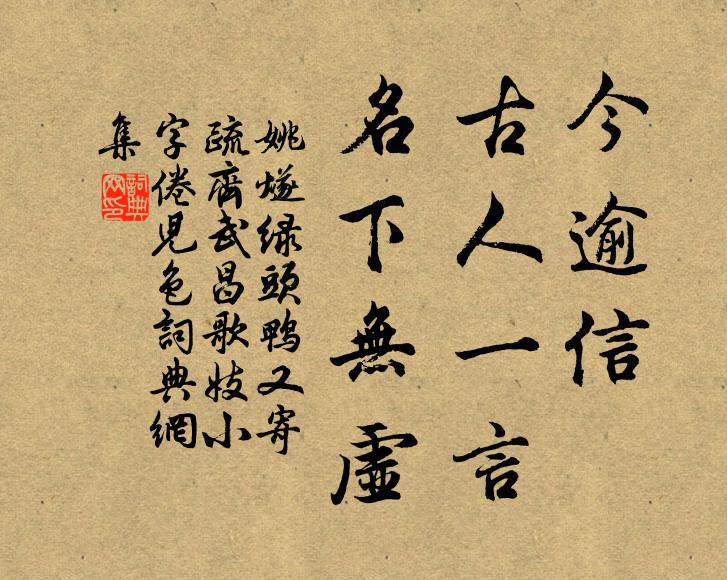 今逾信
古人一言
名下無虛
姚燧綠頭鴨又寄
疏齋武昌歌妓小
字倦兒色詞典網
集
詞典
網印